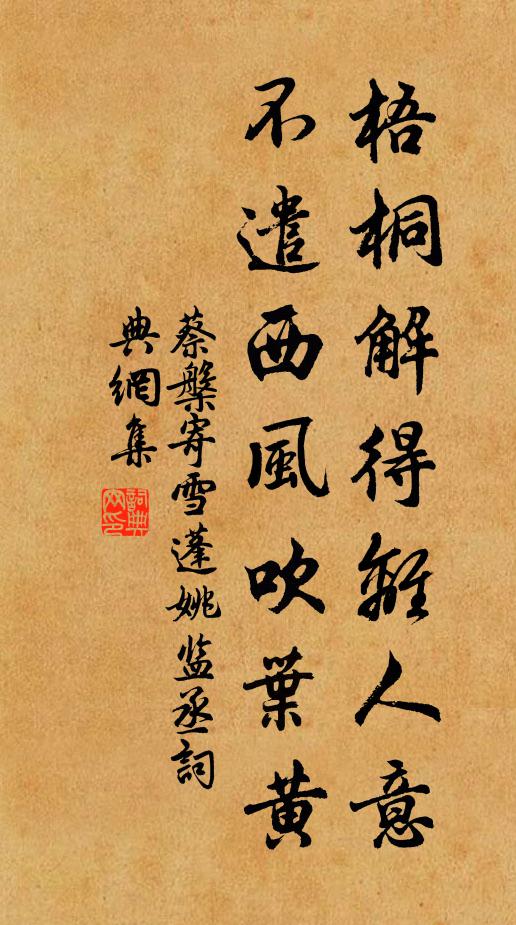 梧桐解得離人意
不遣西風吹葉黃
蔡槃寄雪蓬姚監丞詞
典網集
詞典網印